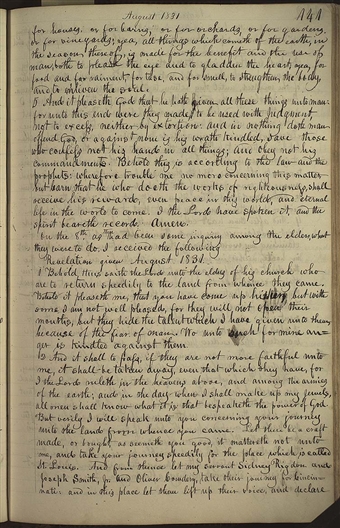 August 1831
141
for houses, or for barns, or for orchards, or for gardens,
or for vineyards; yea, all things which cometh of the earth, in
the season thereof, is made for the benefit and the use of
man, both to please the eye and to gladden the heart; yea, for
food and for raiment, for taste, and for smell, to strengthen the body,
and to enliven the soul.
And it pleaseth God that he hath given all these things unto man:
for unto this end were they made, to be used with judgment,
not to excess, neither by extortion: and in nothing doth man
offend God, or against none is his wrath kindled, save those
who confess not his hand in all things, and obey not his
commandments. Behold this is according to the law and the
prophets: wherefore trouble me no more concerning this matter
but learn that he who doeth the works of righteousness, shall
receive his reward, even peace in this world, and eternal
life in the world to come. I the Lord have spoken it, and the
spirit beareth record. Amen.
On the 8th as had been some inquiry among the elders, what
they were to do, I received the following
Revelation given August 1831.
1 Behold, thus saith the Lord unto the elders of his church who
are to return speedily to the land from whence they came.
Behold it pleaseth me, that you have come up hither; but with
some I am not well pleased, for they will not open their
mouths, but they hide the talent which I have given unto them,
because of the fear of man. Wo unto such for mine an-
ger is kindled against them.
And it shall to pass, if they are not more faithful unto
me, it shall be taken away, even that which they have, for
I the Lord ruleth in the heavens above, and among the armies
of the earth; and in the day when I shall make up my jewels,
all men shall know what it is that bespeaketh the power of God.
But verily I will speak unto you concerning your journey
unto the land from whence you came. Let there be a craft
made, or bought, as seemeth you good, it mattereth not unto
me, and take your journey speedily for the place which is called
St. Louis. And from thence let my servant Sidney Rigdon and
Joseph Smith, jr. and Oliver Cowdery, take their journey for Cincin-
nati: and in this place let them lift up their voice, and declare